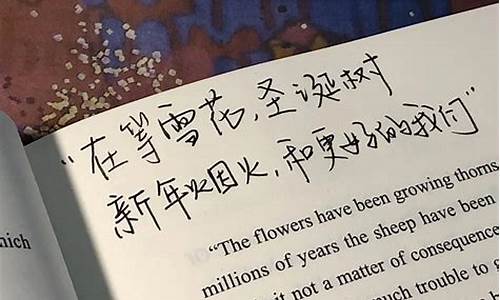 “在等雪花,圣诞树
新年烟火,和更好的我们”
“The flowers have been growing thorns
millions of years the sheep have been
hich
it not a matter of consequence
much trouble to g